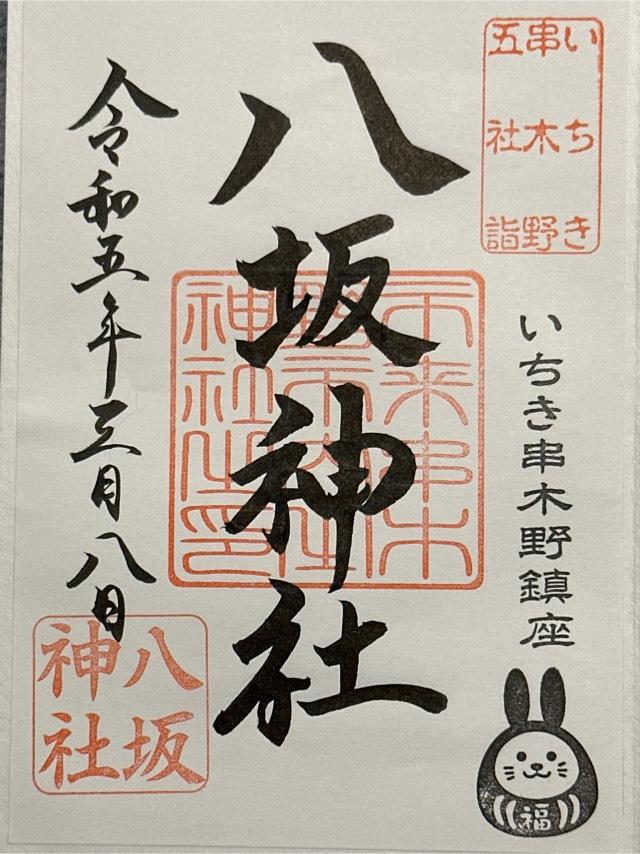 いちき
串木野
五社詣
いちき串木野鎮座
八坂神社
令和五年三月八日
八坂
神社
福